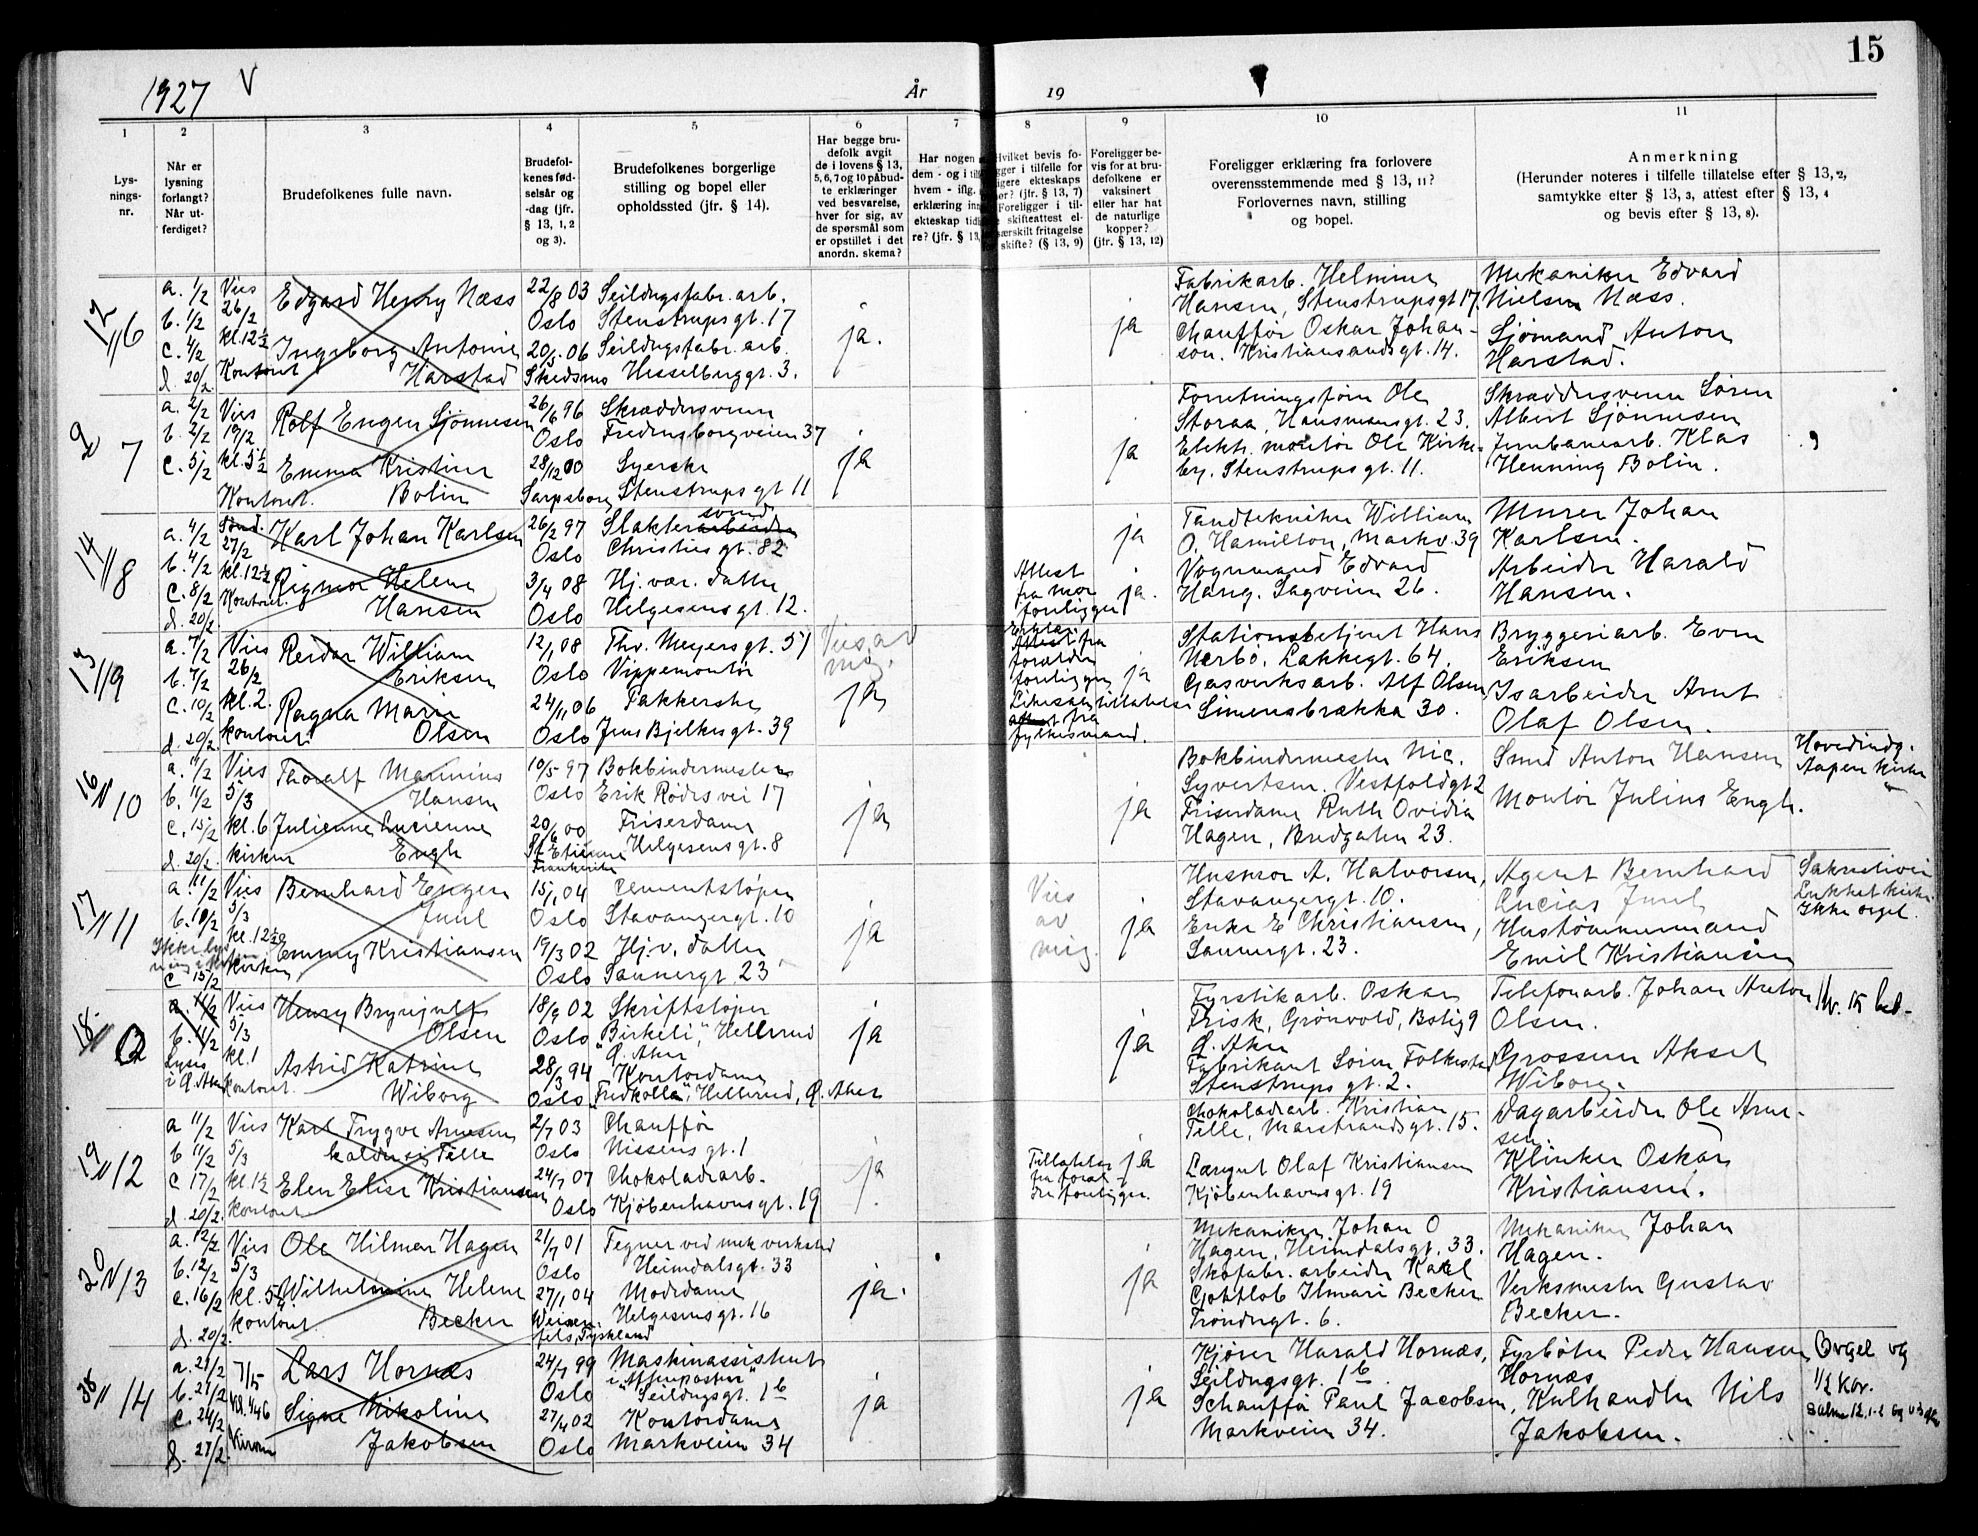 15
1927 V
År
19
1
2
3
4
5
6
7
8
9
10
11
Lys-
nings-
nr.
Når er
lysning
forlangt?
Når ut-
ferdiget?
Brudefolkenes fulle navn.
Brudefol-
kenes fød-
selsår og
-dag (jfr.
§ 13, 1, 2
og 3).
Brudefolkenes borgerlige
stilling og bopel eller
opholdssted (jfr. § 14).
Har begge bru-
defolk avgit
de i lovens § 13,
5, 6, 7 og 10 påbud-
te erklæringer
ved besvarelse,
hver for sig, av
de spørsmål som
er opstillet i det
anordn. skema?
Har nogen
dem - og i
hvem - iflg.
erklæring
ekteskap
re? (jfr. § 13,
Hvilket bevis fo-
gger i tilfelle for
igere ekteskaps
or? (jfr. § 13, 7)
Foreligger i til-
e skifteattest el-
særskilt fritagelse
skifte? (§ 13, 9)
Foreligger be-
vis for at bru-
defolkene er
vaksinert
eller har hat
de naturlige
kopper?
(jfr. § 13, 12)
Foreligger erklæring fra forlovere
overensstemmende med § 13, 11?
Forlovernes navn, stilling
og bopel.
Anmerkning
(Herunder noteres i tilfelle tillatelse efter § 13, 2,
samtykke efter § 13, 3, attest efter § 13, 4
og bevis efter § 13, 8).
12
6
a. 1/2
b. 1/2
c. 4/2
d. 20/2
Vies
26/2
kl. 12½
Kontoret
Edgard Henry Næss
Ingeborg Antonie
Harstad
22/8 03
Oslo
20/5 06
Skedsmo
Seildugsfabr. arb.
Stenstrupsgt. 17
Seildugsfabr. arb.
Hesselberggt. 3.
ja.
ja
Fabrikarb. Helmine
Hansen, Stenstrupsgt 17.
Chauffør Oskar Johan-
son. Kristiansandsgt. 14.
Mekaniker Edvard
Nielsen Næss.
Sjømand Anton
Harstad.
9
7
a. 2/2
b. 2/2
c. 5/2
Vies
19/2
kl. 5½
Kontoret.
Rolf Engen Sjönnesen
Emma Kristine
Bolin
26/6 96
Oslo
28/12 00
Sarpsborg
Skræddersvenn
Fredensborgveien 37
Syerske
Stenstrups gt 11
ja
ja
Forretningsfører Ole
Storaa, Hausmansgt. 23.
Elektr. montør Ole Kirke-
by. Stenstrups gt. 11.
Skræddersvenn Søren
Albert Sjönnesen
Jernbanearb. Klas
Henning Bolin.
14
8
a. 4/2
b. 4/2
c. 8/2
d. 20/2
27/2
kl. 12½
Kontoret.
Karl Johan Karlsen
Rigmor Helene
Hansen
26/2 97
Oslo
3/4 08
Oslo
svend
Slakterarbeider
Christies gt. 82
Hj. vær. datter
Helgesens gt. 12.
Attest
fra mor
foreligger
ja
ja.
Tandtekniker William
O. Hamilton, Markv. 39
Vognmand Edvard
Haug. Sagveien 26.
Murer Johan
Karlsen.
Arbeider Harald
Hansen.
13
9
a. 7/2
b. 7/2
c. 10/2
d. 20/2
Vies
26/2
kl. 2.
kontoret.
Reidar William
Eriksen
Ragna Marie
Olsen
12/1 08
Oslo
24/11 06
Oslo
Thv. Meyers gt. 51
Vippemontør
Pakkerske
Jens Bjelkes gt. 39
Vies av
mig.
ja
Attest fra
forældre
foreligger
fra
fylkesmand.
ja
Stationsbetjent Hans
Nerbö. Lakkegt. 64.
Gasverksarb. Alf Olsen
Simensbrækka 30.
Bryggeriarb. Even
Eriksen
Isarbeider Arnt
Olaf Olsen.
16
10
a. 11/2
b. 11/2
c. 15/2
d. 20/2
Vies
5/3
kl. 6
kirken
Thoralf Mannius
Hansen
Julienne Lucienne
Engh
10/5 97
Oslo
20/6 00
St Etienne
Frankerike
Bokbindermester
Erik Rødes vei 17
Friserdame
Helgesens gt. 8
ja
ja
Bokbindermester Nic.
Syvertsen. Vestfoldgt 2
Friserdame Ruth Ovidia
Hagen, Bredgaten 23.
Smed Anton Hansen
Montør Julius Engh.
Hovedindg.
Aapen kirke
17
11
a. 11/2
b. 10/2
c 15/2
Vies
5/3
kl. 12½
kirken
Bernhard Engen
Juul
Emmy Kristiansen
15/1 04
Oslo
19/3 02
Oslo
Cementstøper
Stavangergt. 10
Hj. v. datter
Sannergt. 23
ja
Vies
av
mig.
ja
Husmor A. Halvorsen,
Stavangergt. 10.
Enke E Christiansen,
Sannergt. 23.
Agent Bernhard
Lucias Juul
Hustømmermand
Emil Kristiansen
Sakristivei
Lukket kirke
Ikke orgel.
18
a. 11/2
b. 11/2
Lyses
i Ø. Aker
Vies
5/3
kl. 1
kontoret.
Henry Brynjulf
Olsen
Astrid Katrine
Wiborg
18/9 02
Oslo
28/3 94
Oslo
Skriftstøper
"Birkeli", Hellerud
Ø. Aker
Kontordame
"Fredkolla", Hellerud, Ø. Aker
ja
ja
Fyrstikarb. Oskar
Frisk, Grönvold, Bolig 9
Ø. Aker
Fabrikant Søren Folkestad
Stenstrups gt. 2.
Telefonarb. Johan Anton
Olsen.
Grosserer Aksel
Wiborg.
19
12
a 11/2
b 11/2
c 17/2
d. 20/2.
Vies
5/3
kl. 1½
kontoret
Karl Trygve Arnesen
kalder sig Tille
Elen Elise Kristiansen
2/7 03
Oslo
24/7 07
Oslo
Chauffør
Nissens gt. 1
Chokoladearb.
Kjöbenhavnsgt. 19
ja
Tillatelse
fra foræl-
dre foreligger.
ja
Chokoladearb. Kristian
Tille, Marstrandsgt. 15.
Læregut Olaf Kristiansen
Kjöbenhavnsgt. 19
Dagarbeider Ole Arne-
sen.
Klinker Oskar
Kristiansen.
20
13
a. 12/2
b. 12/2
c. 16/2
d. 20/2.
Vies
5/3
kl. 5¼
kontoret.
Ole Hilmar Hagen
Wilhelmine Helene
Becker
21/7 01
Oslo
27/1 04
Weissen-
fels, Tyskland
Tegner ved mek verksted
Heimdalsgt. 33
Modedame
Helgesensgt. 16
ja.
ja
Mekaniker Johan O
Hagen, Heimdalsgt. 33.
Skofabr. arbeider Karl
Gottlob Ilmari Becker
Tröndergt. 6.
Mekaniker Johan
Hagen.
Verksmester Gustav
Becker.
14
a. 21/2
b. 21/2
c. 24/2
d. 27/2.
7/5
Lars Hornæs
Signe Nikoline
Jakobsen
24/7 99
Oslo
27/4 02
Oslo
Maskinassistent
i "Aftenposten"
Seildugsgt. 1 b
Kontordame
Markveien 34
ja
ja
Kjører Harald Hornæs,
Seildugsgt. 1 b.
Schauffør Paul Jacobsen,
Markveien 34.
Fyrbøter Peder Hansen
Hornæs
Kulhandler Nils
Jakobsen.
Orgel og
½ kor.